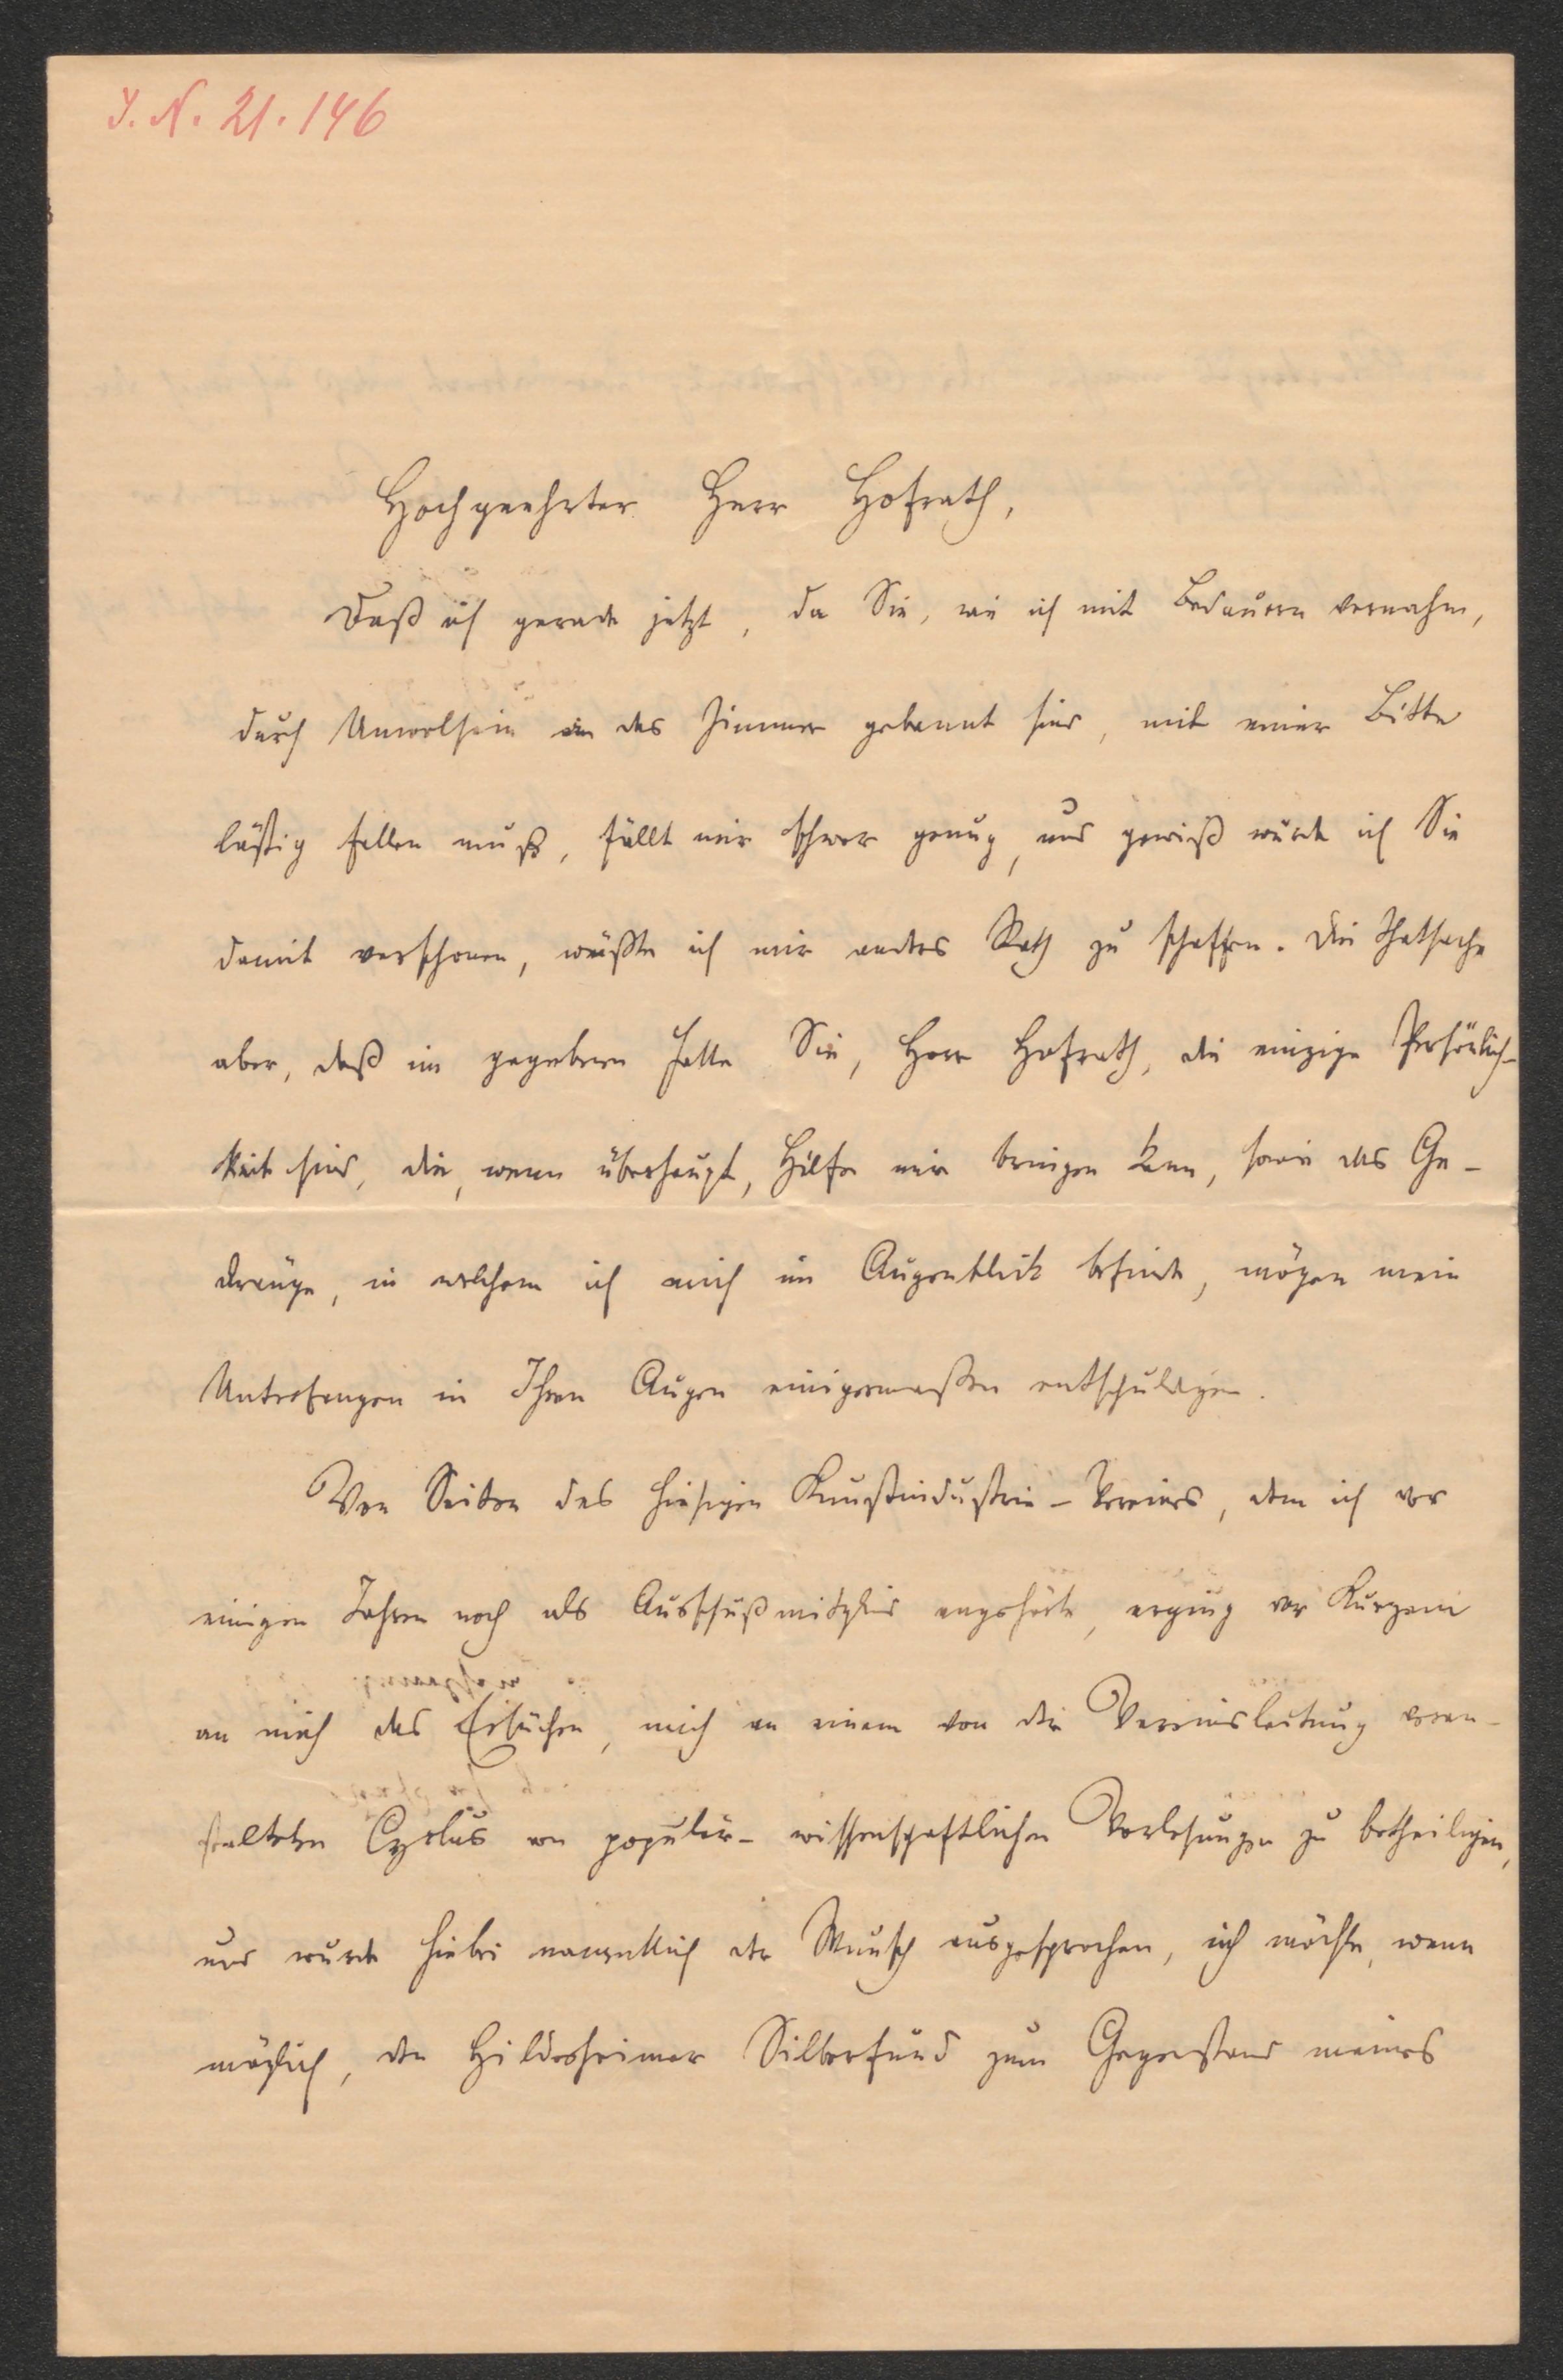 J. N. 21.146
Hochgeehrter Herr Hofrath,
Daß ich gerade jetzt, da Sie, wie ich mit Bedauern vernahm,
durch Unwolsein an das Zimmer gebannt sind, mit einer Bitte
läßtig fallen muß, fällt mir schwer genug, und gewiß würde ich Sie
damit verschonen, wüßte ich mir anders Rath zu schaffen. Die Thatsache
aber, daß im gegebenen Falle Sie, Herr Hofrath, die einzige Persönlich-
keit sind, die, wenn überhaupt, Hilfe mir bringen kann, sowie das Ge-
dränge, in welchem ich mich im Augenblick befinde, mögen mein
Unterfangen in Ihren Augen einigermaßen entschuldigen.
Von Seiten des hiesigen Kunstindustrie-Vereins, dem ich vor
einigen Jahren noch als Ausschußmitglied angehörte, erging vor Kurzem
an mich das Ersuchen, mich an einem von der Vereinsleitung veran-
stalteten Cyclus von populär-wissenschaftlichen Vorlesungen zu betheiligen,
und wurde hiebei namentlich der Wunsch ausgesprochen, ich möchte, wenn
möglich, den Hildesheimer Silberfund zum Gegenstand meines